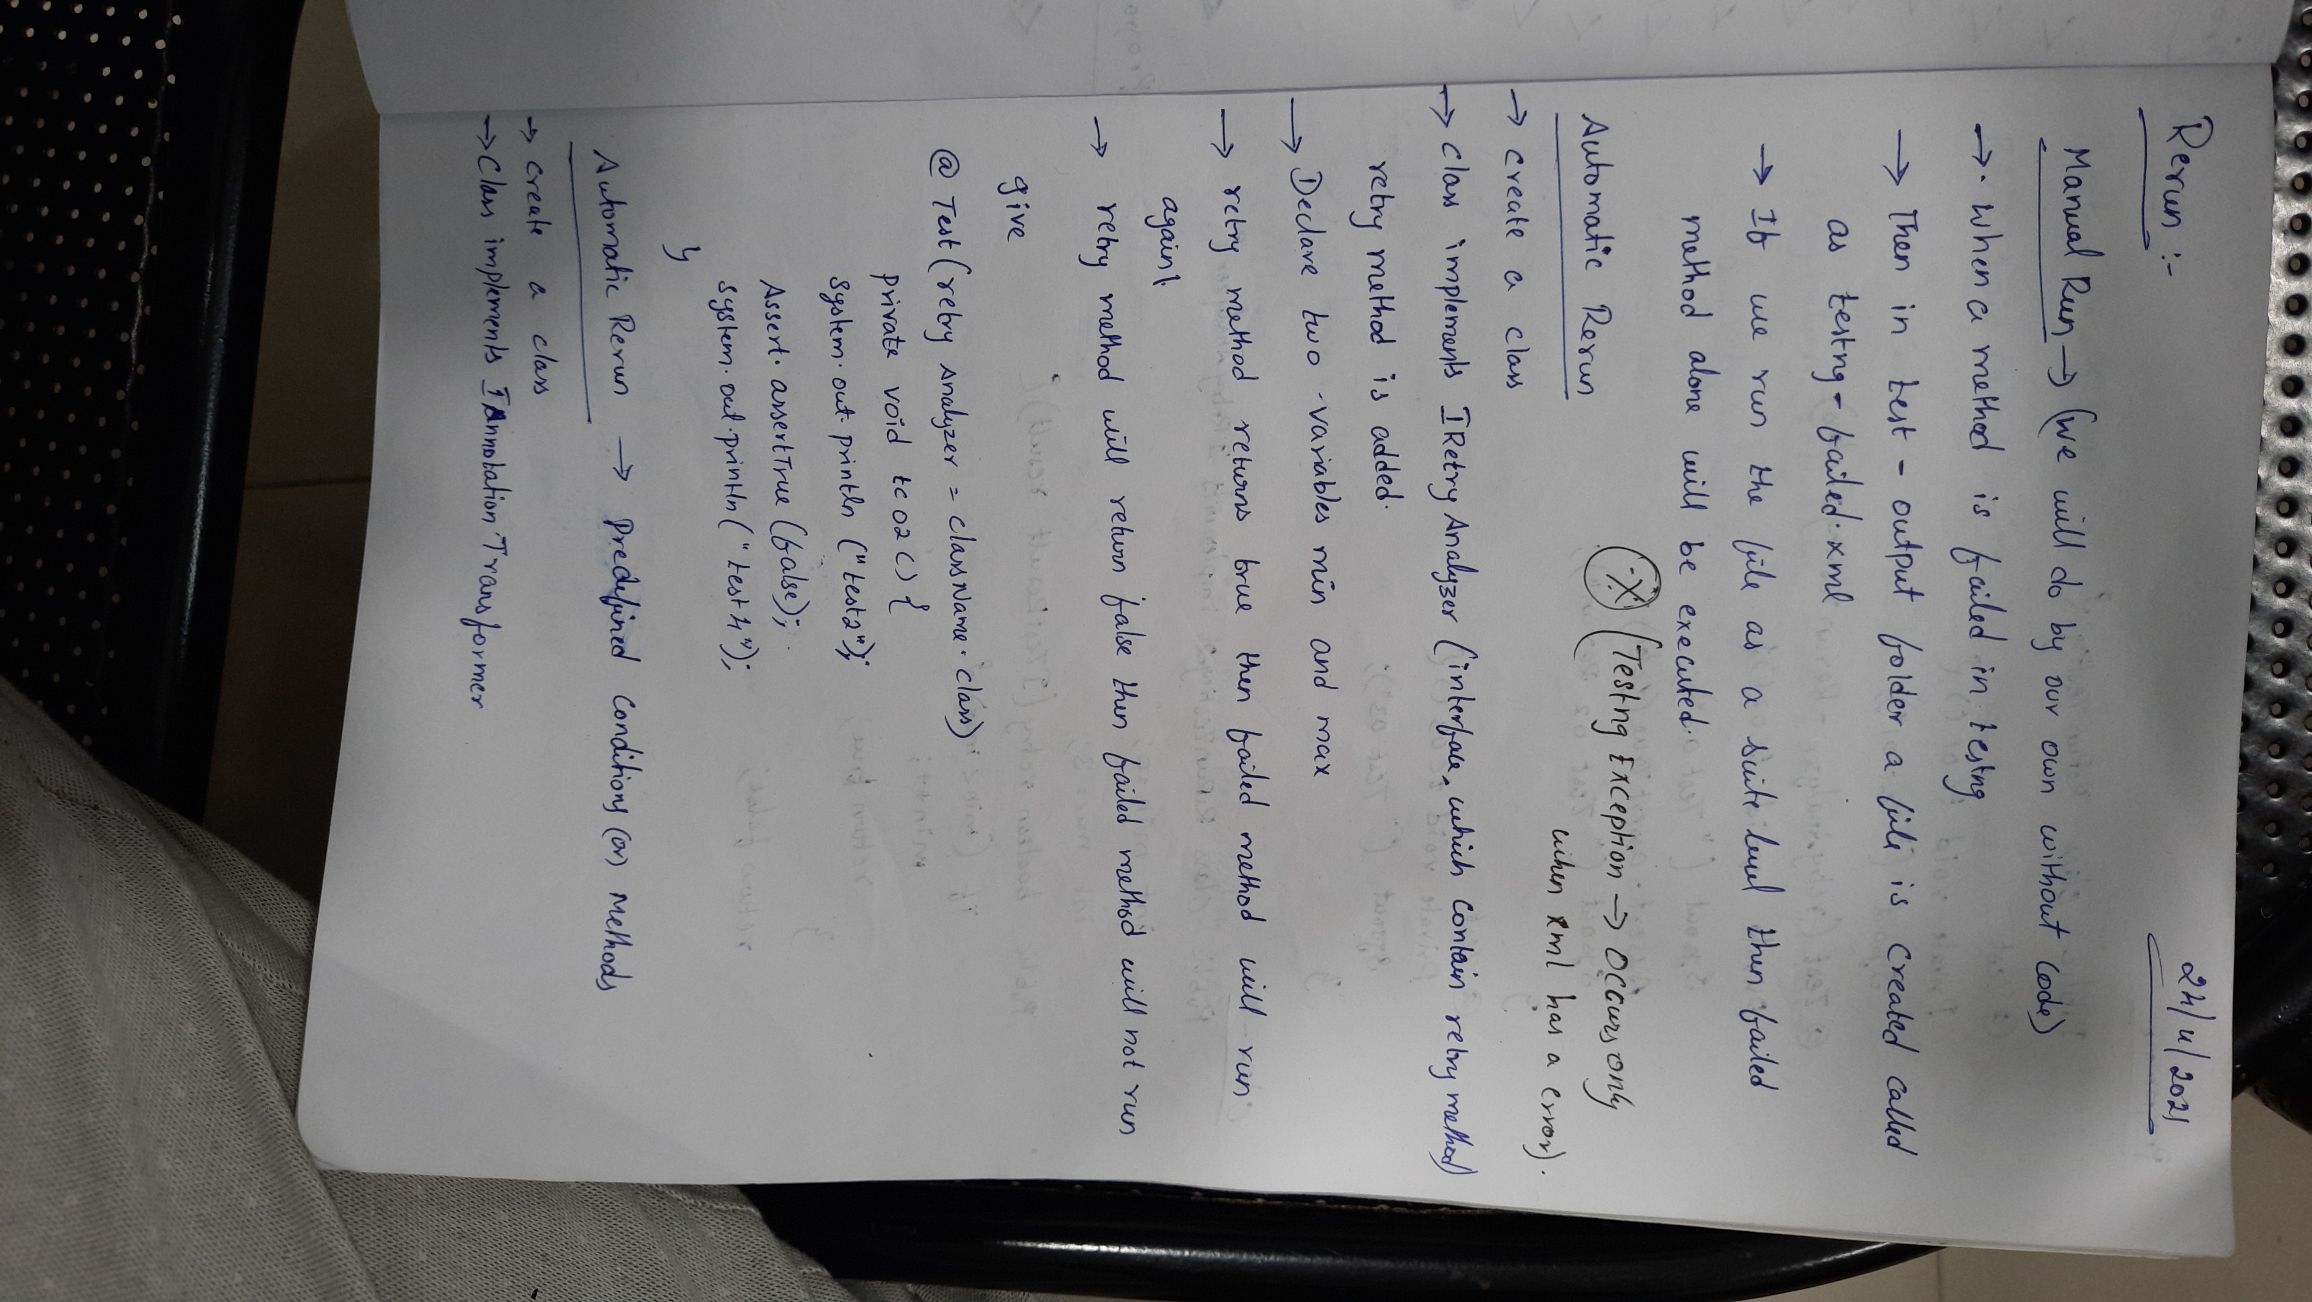 24/4/2021
Rerun :-
Manual Run → (we will do by our own without code)
→ When a method is failed in testng
→ Then in test - output folder a file is created called
as testng - failed.xml
→ If we run the file as a suite level then failed
method alone will be executed.
(X) (Testng Exception → occurs only
when xml has a error).
Automatic Rerun
→ create a class
→ class implements IRetry Analyzer (interface, which contain retry method)
retry method is added.
→ Declare two variables min and max
→ retry method returns true then failed method will run
again.
→ retry method will return false then failed method will not run
give
@ Test (retry Analyzer = className.class)
private void tc02 () {
System.out.println ("test2");
Assert.assertTrue (false);
System.out.println ("test4");
}
Automatic Rerun → Predefined conditions (or) methods
→ create a class
→ Class implements IAnnotation Transformer